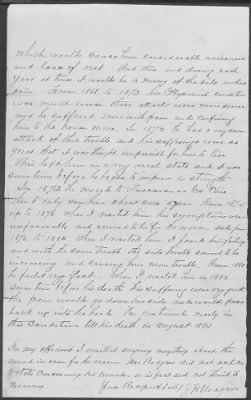 which would cause him considerable uneasiness
and loss of rest. And then and during each
year at times it would be a of the side with
pain. From 1868 to 1873 his Physical condition
was much worse these attack were more severe
and he suffered more with pain and confining
him to the house more. In 1873 he had a severe
attack of this trouble and his sufferings were so
great that it was thought impossible for him to live
This left him in a very weak state and it was
sometime before he began to improve in strength.
In 1873 he moved to Co Ohio
Then I only saw him about once a year from 1873
up to 1876 When I visited him his symptoms were
unfavorable and seemed to be for the worse. Still from
1876 to 1880. When I visited him I found him failing
and with the same trouble. The side trouble seemed to be
increasing and causing him more trouble. From 1880
he failed very fast. When I visited him in 1885
sometime before his death his suffering was very great
the pain would go down his side and would pass
back up into his head. He continued nearly in
this Condition till his death in August 1885

In my affidavit I omitted saying anything about the
wound in for the reason Mrs Rodgers did not ask me
to state concerning his wound, so in fact did not think it
necessary
Yours Respectfully J. H. Rodgers